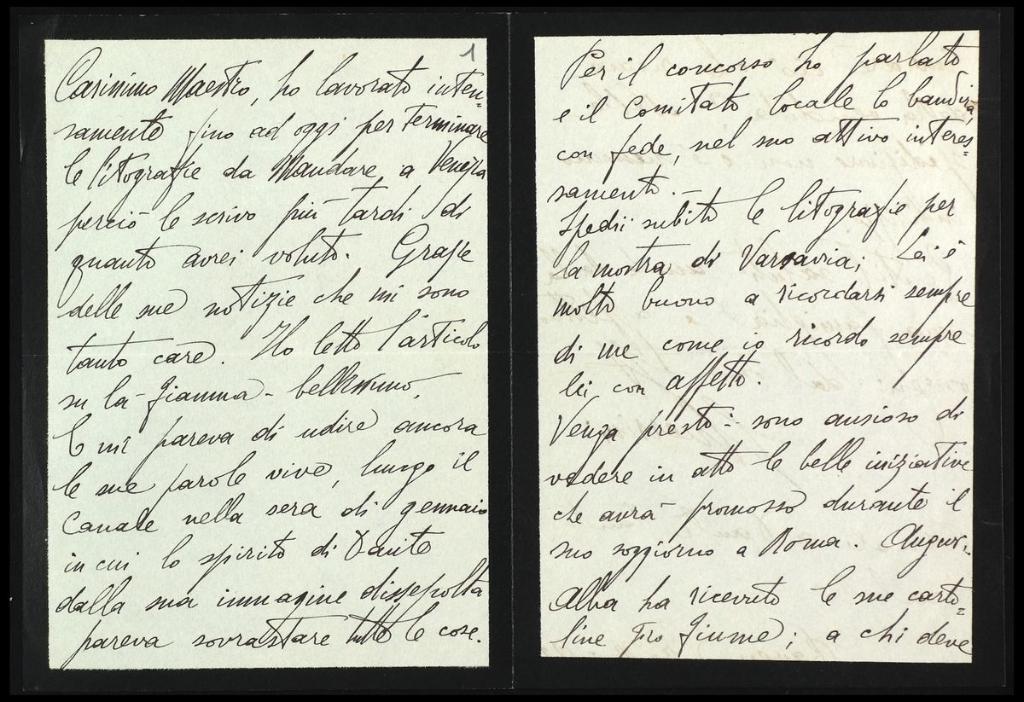 1
Carissimo Maestro, ho lavorato inten=
samente fino ad oggi per terminare
le litografie da Mandare a Venezia
perciò le scrivo più tardi di
quanto avrei voluto. Grazie
delle sue notizie che mi sono
tanto care. Ho letto l'articolo
su la fiamma - bellissimo,
E mi pareva di udire ancora
le sue parole vive, lungo il
Canale nella sera di gennaio
in cui lo spirito di Dante
dalla sua immagine dissepolta
pareva sovrastare tutte le cose.
Per il concorso ho parlato
e il Comitato locale lo bandirà,
con fede, nel suo attivo interes=
samento.-
Spedii subito le litografie per
la mostra di Varsavia; Lei è
molto buono a ricordarsi sempre
di me come io ricordo sempre
lei con affetto.
Venga presto: sono ansioso di
vedere in atto le belle iniziative
che avrà promosso durante il
suo soggiorno a Roma. Auguri.
Alba ha ricevuto le sue carto=
line Pro Fiume; a chi deve